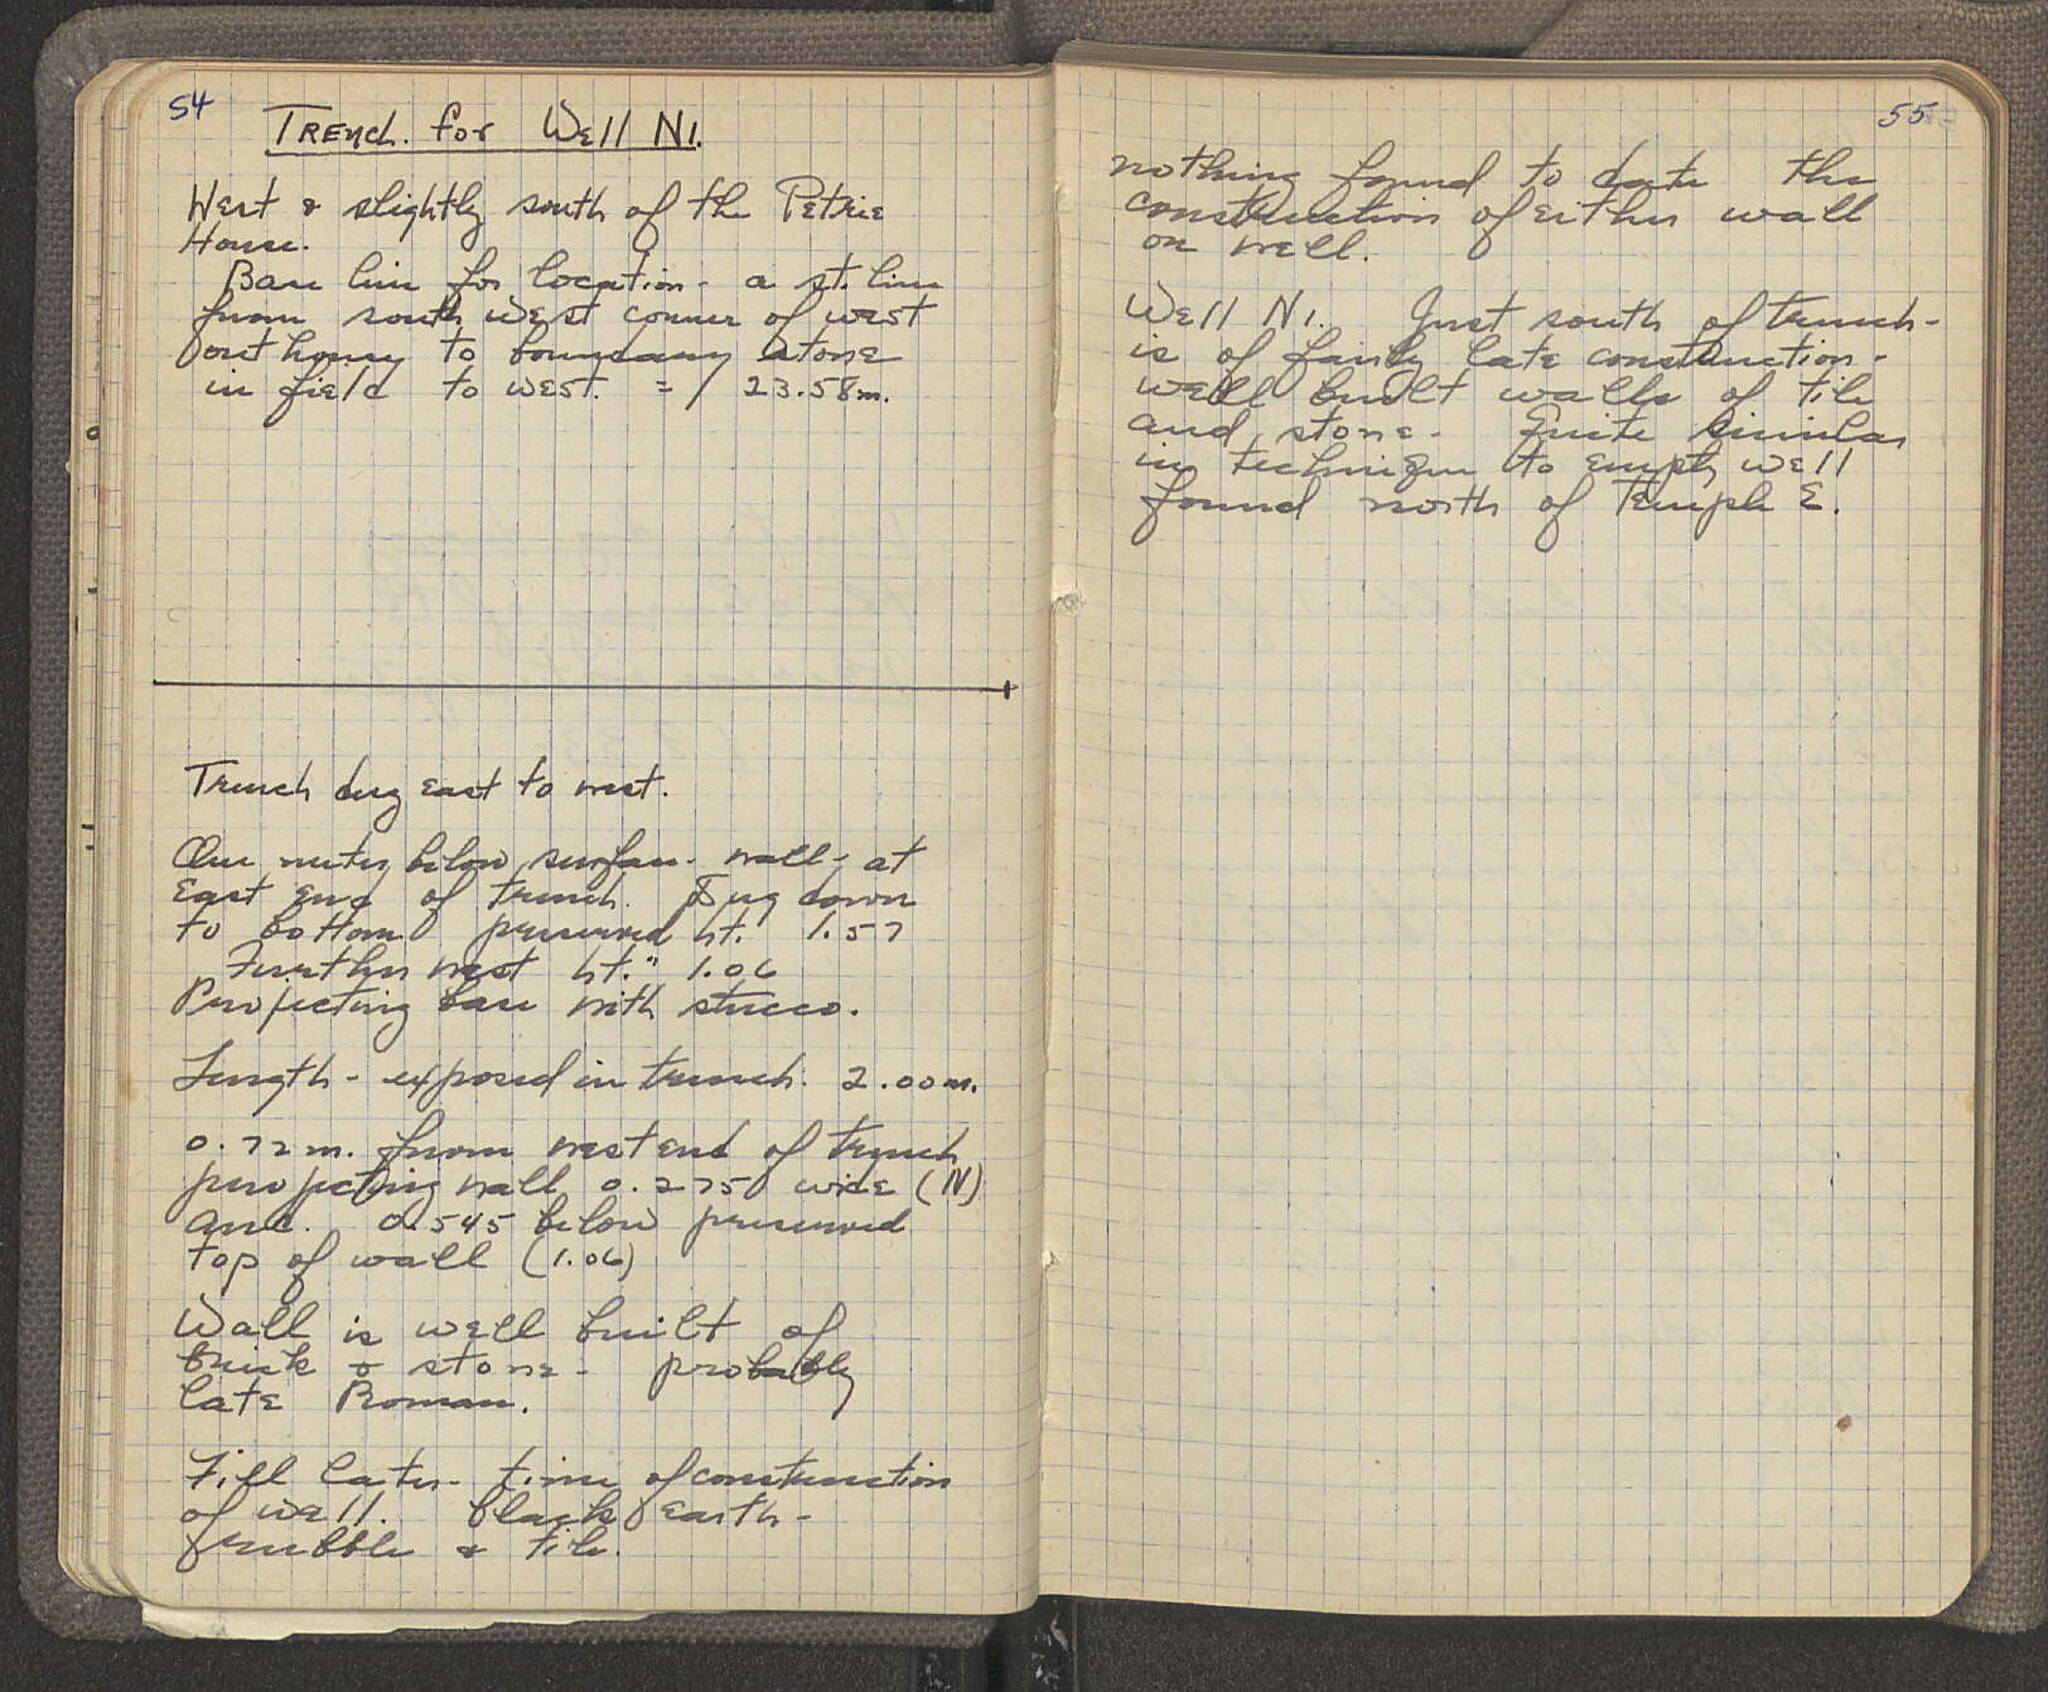 54
Trench. for Well N1.
West & slightly south of the Petrie
House.
Base line for location - a st. line
from south west corner of west
out house to boundary stone
in field to west. = / 23.58m.
Trench dug east to west.
One meter below surface - wall - at
east end of trench. Dug down
to bottom preserved ht. 1.57
Further west ht. " 1.06
Projecting base with stucco.
Length - exposed in trench. 2.00m.
0.72m. from west end of trench
projecting wall 0.275 wide (N)
and. 0.545 below preserved
top of wall (1.06)
Wall is well built of
brick & stone - probably
late Roman.
Fill later - time of construction
of well. black earth -
rubble & tile.
55
nothing found to date the
construction of either wall
or well.
Well N1. Just south of trench -
is of fairly late construction -
well built walls of tile
and stone - Quite similar
in technique to empty well
found north of Temple E.